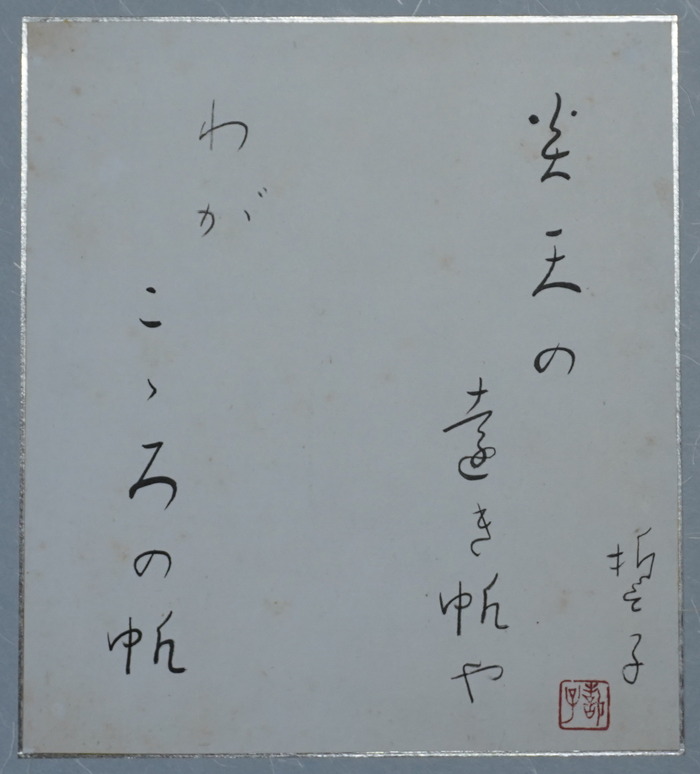 炎天の
遠き帆や
わが
こゝろの帆
誓子